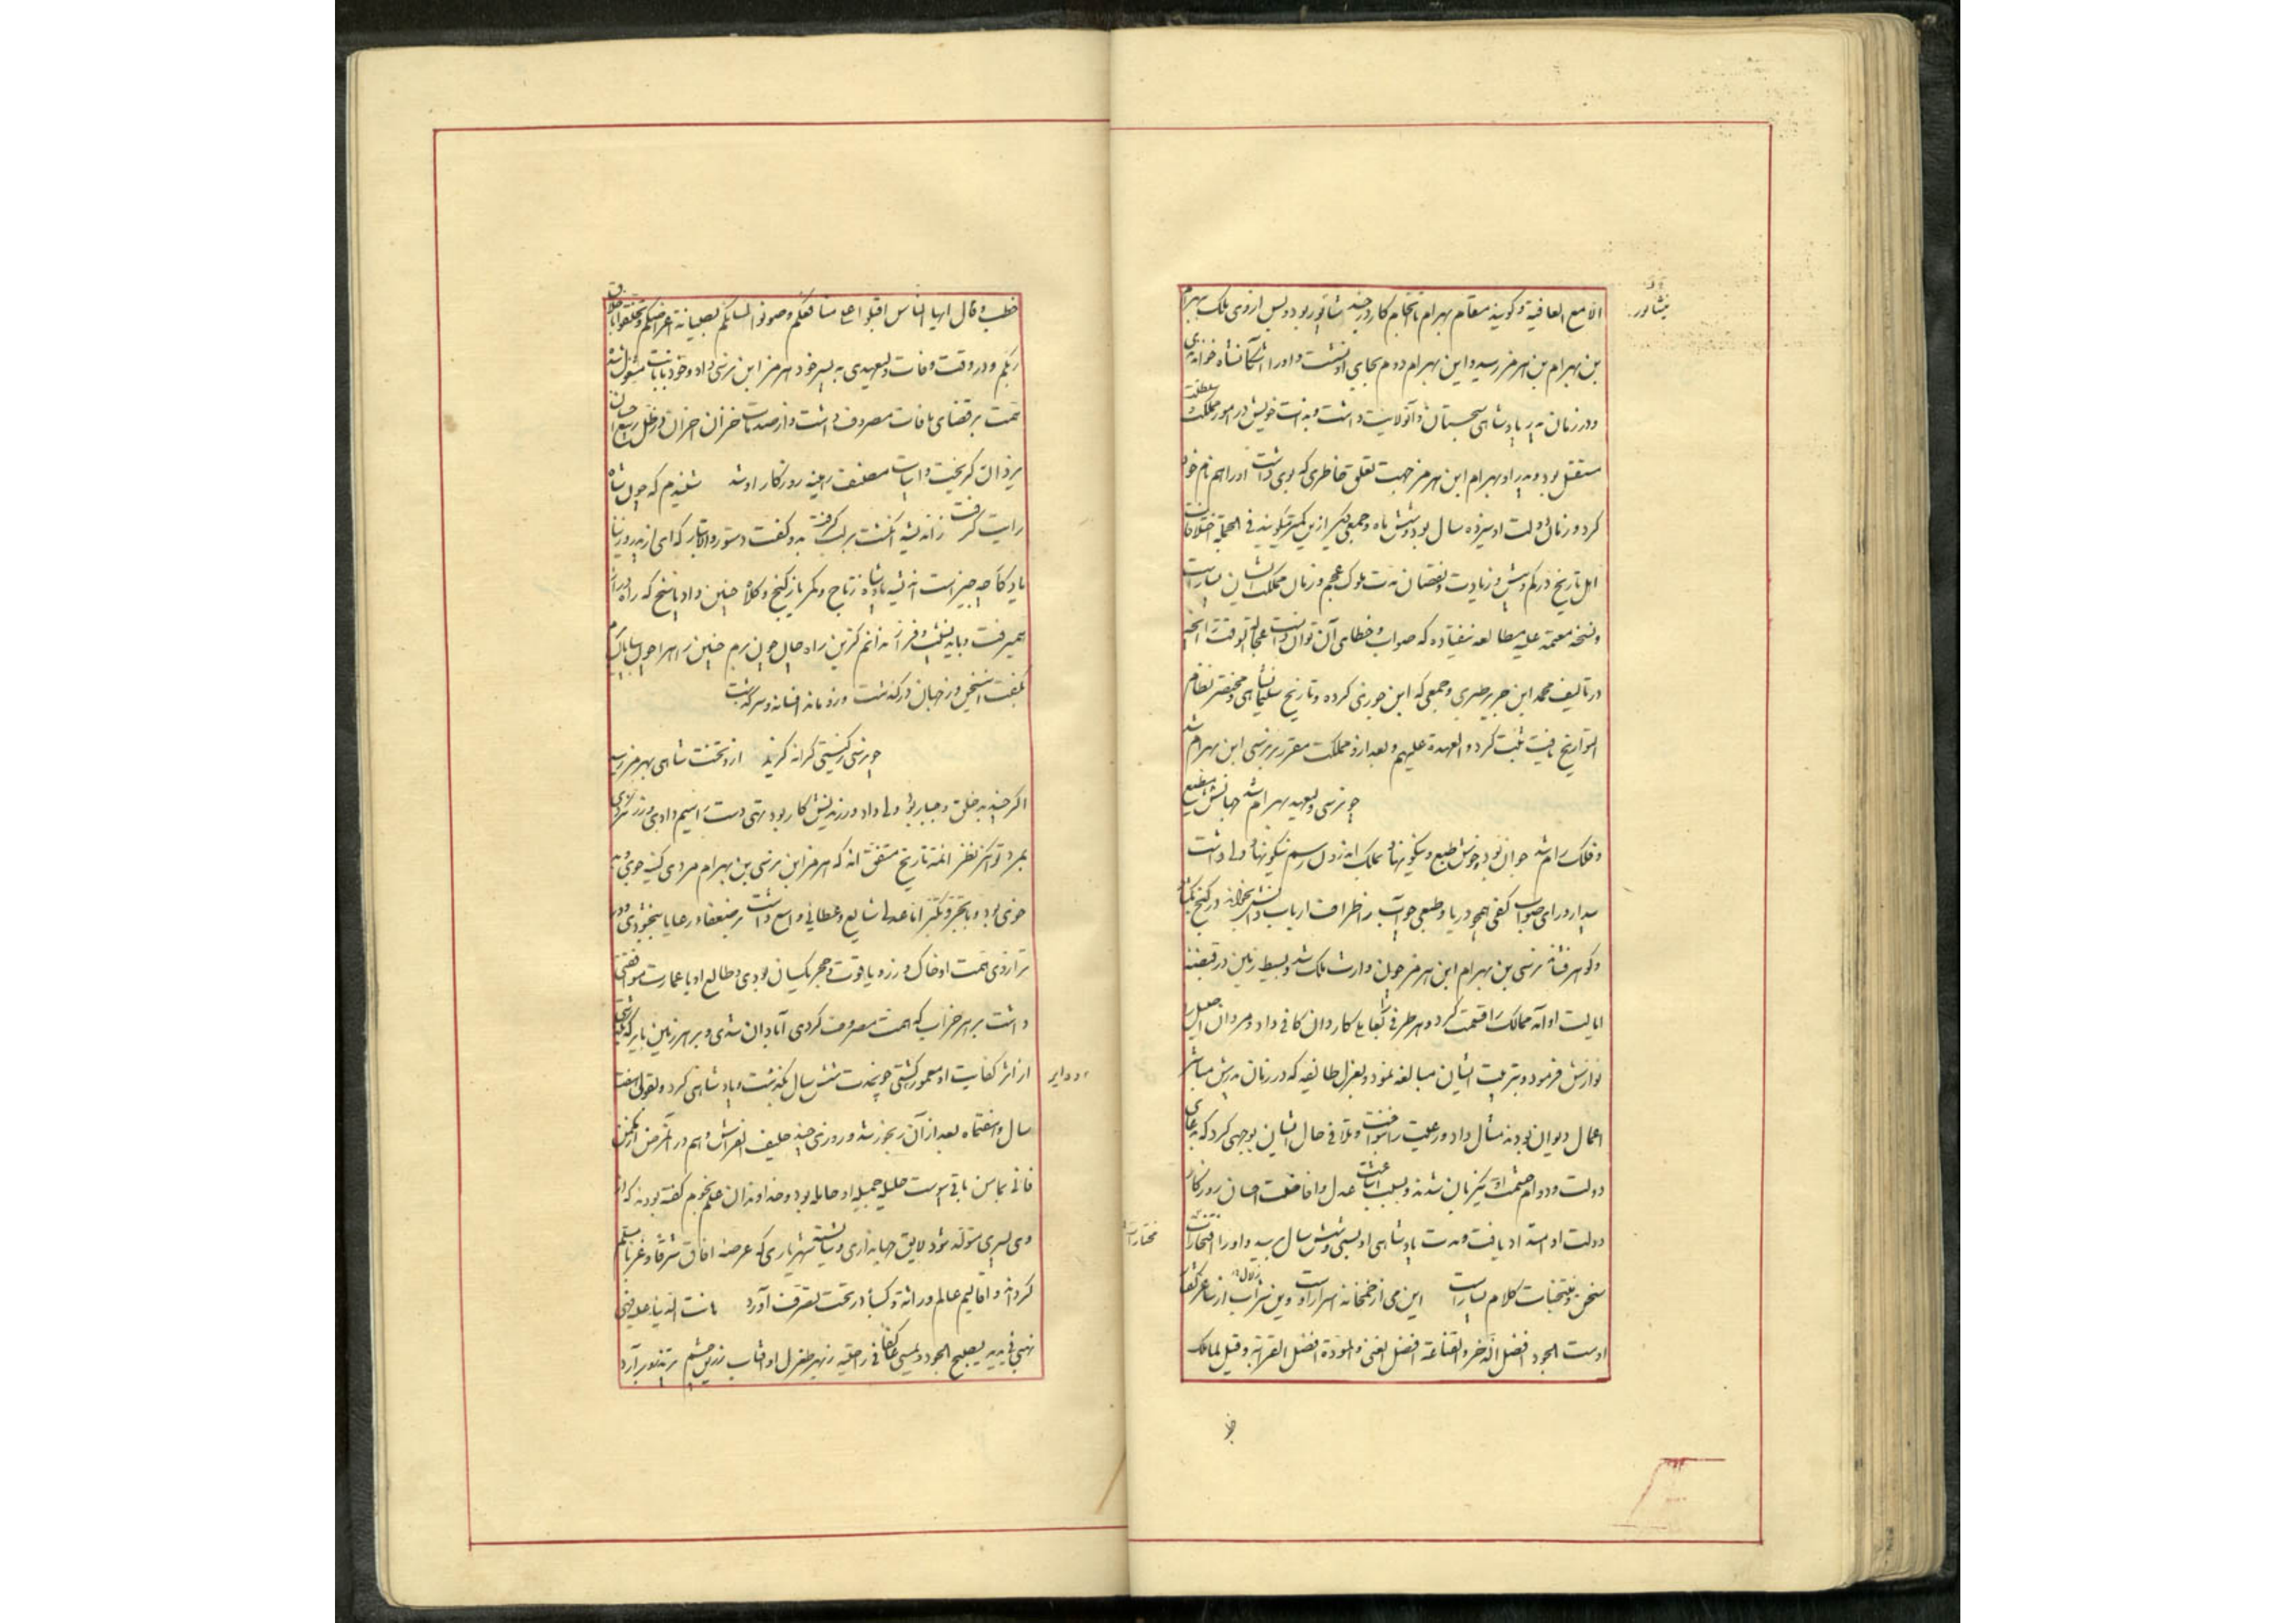 الا مع العافیة و گویند مقام بهرام تا انجام کار در جند شاپور بود و پس از وی ملک بهرام
بن بهرام بن هرمز رسید و این بهرام دوم بجای او نشست و او را شاهنشاه خواندندی
و در زمان پدر پادشاهی سجستان و آنولایت داشت و بذات خویش در امور مملکت و سلطنت
مستقل بود و پدر او بهرام ابن هرمز جهت تعلق خاطری که بوی داشت او را هم نام خود
کرد و زمان دولت او سیزده سال بود و شش ماه و جمعی دیگر ازین کمتر گویند فی الجمله اختلافات
اهل تاریخ در کم و بیش و زیادت و نقصان مدت ملوک عجم و زمان مملکت ایشان بسیار است
و نسخه معتمد علیه مطالعه نیفتاده که صواب و خطای آن توان دانست عجالة الوقت را آنچه
در تالیف محمد ابن جریر طبری و جمعی که ابن جوزی کرده و تاریخ سلیمانشاهی و مختصر نظام
التواریخ یافت ثبت کرد و العهدة علیهم و بعد ازو مملکت مقرر بر نرسی ابن بهرام شد
چو نرسی ولیعهد بهرام شد جهانش مطیع
و فلک رام شد جوان بود و خوش طبع و نیکو نهاد بملک اندرون رسم نیکو نهاد ولی داشت
بیدار و رای صواب کفی همچو دریا و طبعی چو آب ز اطراف ارباب دانش بخواند در گنج بگشاد
و گوهر فشاند نرسی بن بهرام ابن هرمز چون وارث ملک شد و بسیط زمین در قبضه
ایالت او آمد ممالک را قسمت کرد و هر طرفی بکفایت کاردان کافی داد و مردان اصیل را
نوازش فرمود و بتربیت ایشان مبالغه نمود و بعزل طایفه که در زمان پدرش مباشر
اعمال دیوان بودند مثال داد و رعیت را بنواخت و تلافی حال ایشان بوجهی کرد که بدعای
دولت و دوام حشمت او یکزبان شدند و بسبب اشاعت عدل و افاضت احسان روزگار
دولت او امتداد یافت و مدت پادشاهی او بسی و شش سال رسید و او را افتخارات
سخن و منتخبات کلام بسیار است این می از خمخانه اسرار اوست وین شراب از ساغر گفتار
اوست الجود افضل الذخر و القناعة افضل الغنی و المودة افضل القرابة و قیل لما ملک
نیشابور
مختارات
خطب و قال ایها الناس اقبلوا علی منافعکم و صونوا السنتکم بصیانة اعراضکم و تخلقوا باخلاق
ربکم و در وقت وفات ولیعهدی به پسر خود هرمز ابن نرسی داد و خود بانابت مشغول شد
همت بر قضای مافات مصروف داشت و از صدمات خزان احزان در ظل ربیع احسان
یزدان گریخت شنیدم که چون شاه
رایت گرفت ز اندیشه انگشت بر لب گرفت بدو گفت دستور والا تبار که ای از پدر وز نیا
یادگار چه چیز است اندیشه پادشاه ز تاج و کمر یا ز گنج و کلاه چنین داد پاسخ که راه دراز
همی رفت باید نشیب و فراز ندانم کزین راه حال چون برم
بگفت این سخن وز جهان درگذشت وزو ماند افسانه و سرگذشت
چو نرسی ز گیتی کرانه گزید ازو تخت شاهی بهرمز رسید
اگر چند بد خلق و جبار بود ولی داد ورزیدنش کار بود تهی دست را سیم دادی و زر نکردی
بمرد توانگر نظر ائمه تاریخ متفق اند که هرمز ابن نرسی بن بهرام مردی کینه جوی و بد
خوی بود و با تجبر و تکبر اما عدلی شایع و عطائی واسع داشت بر ضعفا و رعایا ببخشودی و در
ترازوی همت او خاک و زر و یاقوت و حجر یکسان بودی و طالع او با عمارت موافقتی
داشت بر هر خراب که همت مصروف کردی آبادان شدی و بر هر زمین بایر که بگذشتی
از اثر کفایت او معمور گشتی چون مدت شش سال بگذشت و پادشاهی کرد و بقولی هفت
سال و هفتماه بعد از آن رنجور شد و روزی چند حلیف الفراش و هم در آن مرض از مکمن
فانی بمامن باقی پیوست حلیله جمیله او حامله بود و خداوندان علم نجوم گفته بودند که از
وی پسری متولد شود لایق جهانداری و شایسته شهریاری که عرصه آفاق شرقا و غربا مسلم
کرداند و اقالیم عالم وراثة و کسبا در تحت تصرف آورد مانت الدنیا علیه فهی
نهبی فی یدیه یصبح الجود و یمسی عاکفا فی راحتیه ز پی طغرل او آفتاب زرین چشم